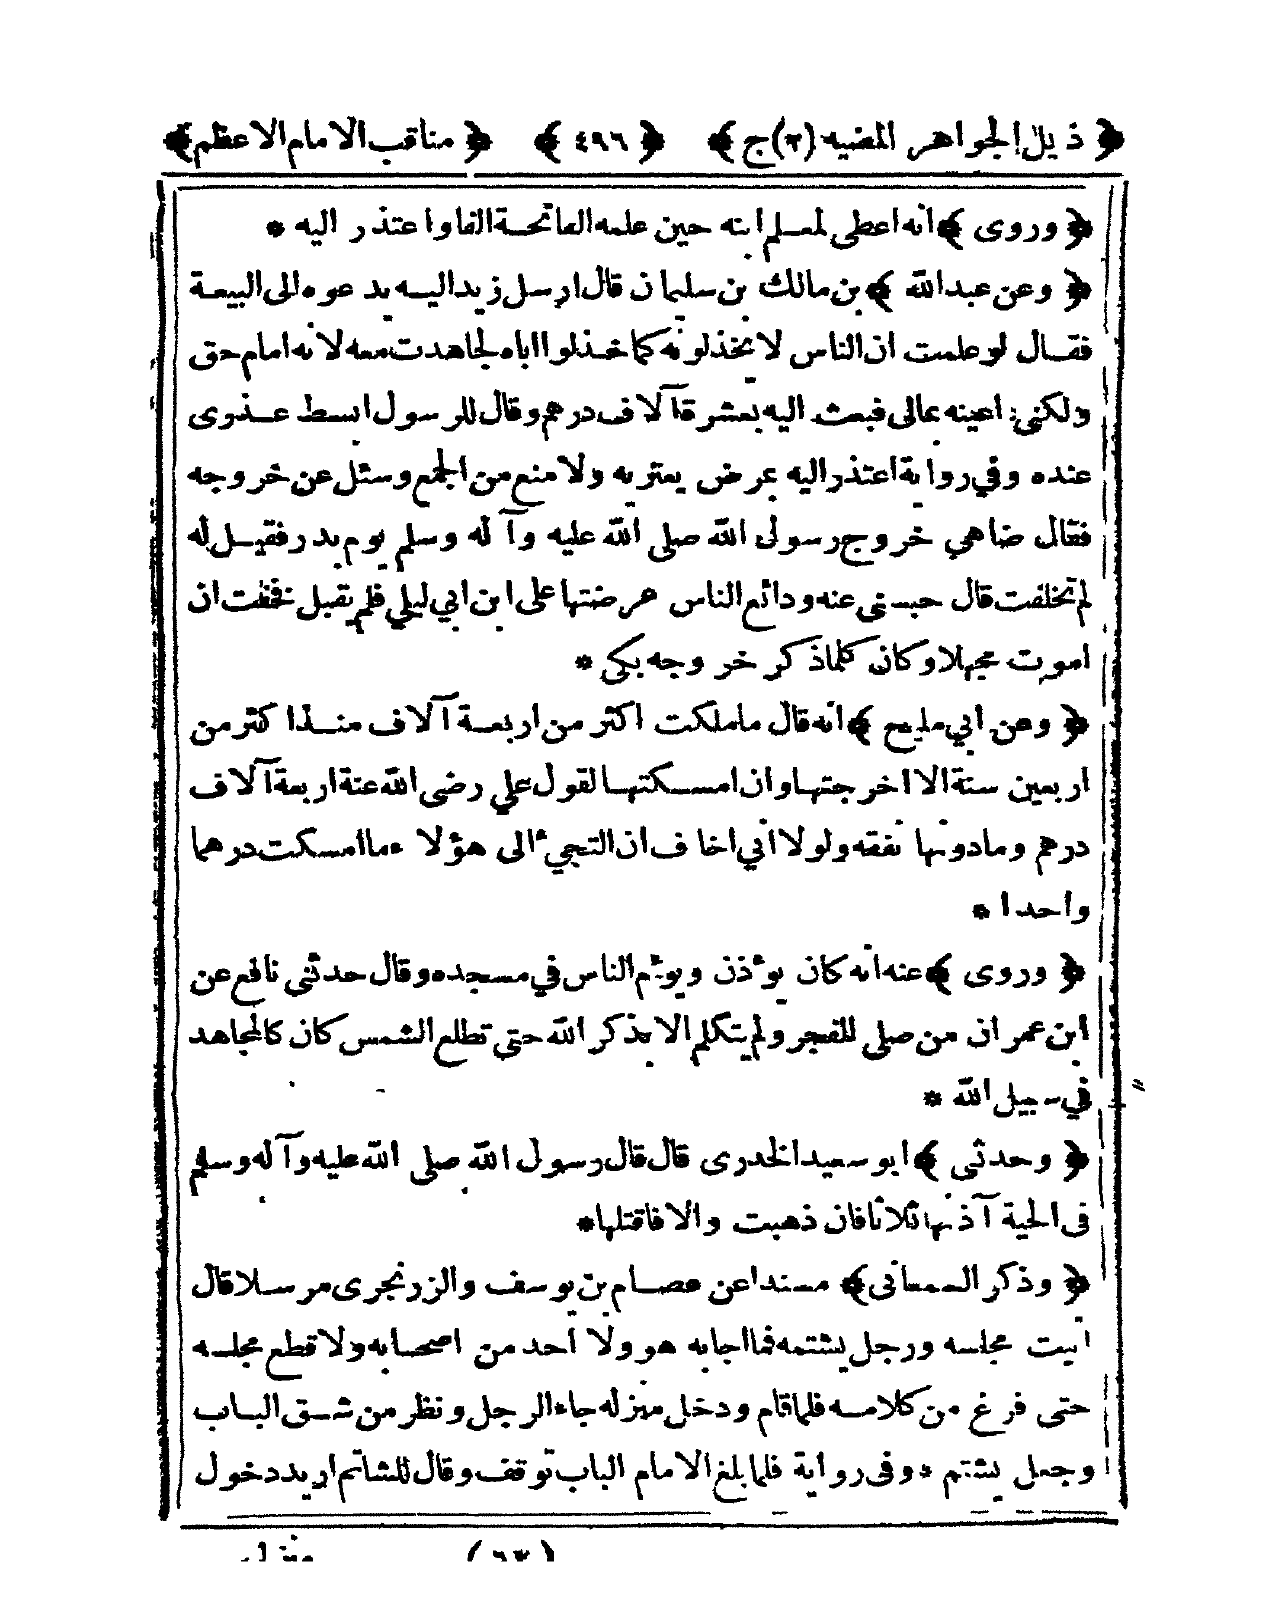 ﴿ ذيل الجواهر المضيه (٢) ج ﴾ ﴿ ٤٩٦ ﴾ ﴿ مناقب الامام الاعظم ﴾
﴿ وروى ﴾ انه اعطى لمعلم ابنه حين علمه الفاتحة الفا واعتذر اليه *
﴿ وعن عبد الله ﴾ بن مالك بن سليمان قال ارسل زيد اليه يدعوه الى البيعة
فقال لو علمت ان الناس لا يخذلونه كما خذلوا اباه لجاهدت معه لانه امام حق
ولكني اعينه بمالى فبعث اليه بعشرة آلاف درهم وقال للرسول ابسط عذرى
عنده وفي رواية اعتذر اليه بمرض يعتريه ولا منع من الجمع وسئل عن خروجه
فقال ضاهي خروج رسول الله صلى الله عليه وآله وسلم يوم بدر فقيل له
لم تخلفت قال حبسنى عنه ودائع الناس عرضتها على ابن ابي ليلي فلم يقبل فخفت ان
اموت مجهلا وكان كلما ذكر خروجه بكى *
﴿ وعن ابي مليح ﴾ انه قال ما ملكت اكثر من اربعة آلاف منذ اكثر من
اربعين سنة الا اخرجتها وان امسكتها لقول علي رضى الله عنه اربعة آلاف
درهم وما دونها نفقه ولولا انى اخاف ان التجيء الى هؤلاء ما امسكت درهما
واحدا *
﴿ وروى ﴾ عنه انه كان يؤذن ويؤم الناس في مسجده وقال حدثنى نافع عن
ابن عمر ان من صلى للفجر ولم يتكلم الا بذكر الله حتى تطلع الشمس كان كالمجاهد
في سبيل الله *
﴿ وحدثنى ﴾ ابو سعيد الخدرى قال قال رسول الله صلى الله عليه وآله وسلم
فى الحية آذنها ثلاثا فان ذهبت والا فاقتلها *
﴿ وذكر السمعانى ﴾ مسندا عن عصام بن يوسف والزرنجرى مرسلا قال
اتيت مجلسه ورجل يشتمه فما اجابه هو ولا احد من اصحابه ولا قطع مجلسه
حتى فرغ من كلامه فلما قام ودخل منزله جاء الرجل ونظر من شق الباب
وجعل يشتم ه وفى رواية فلما بلغ الامام الباب توقف وقال للشاتم اريد دخول
(٦٢)